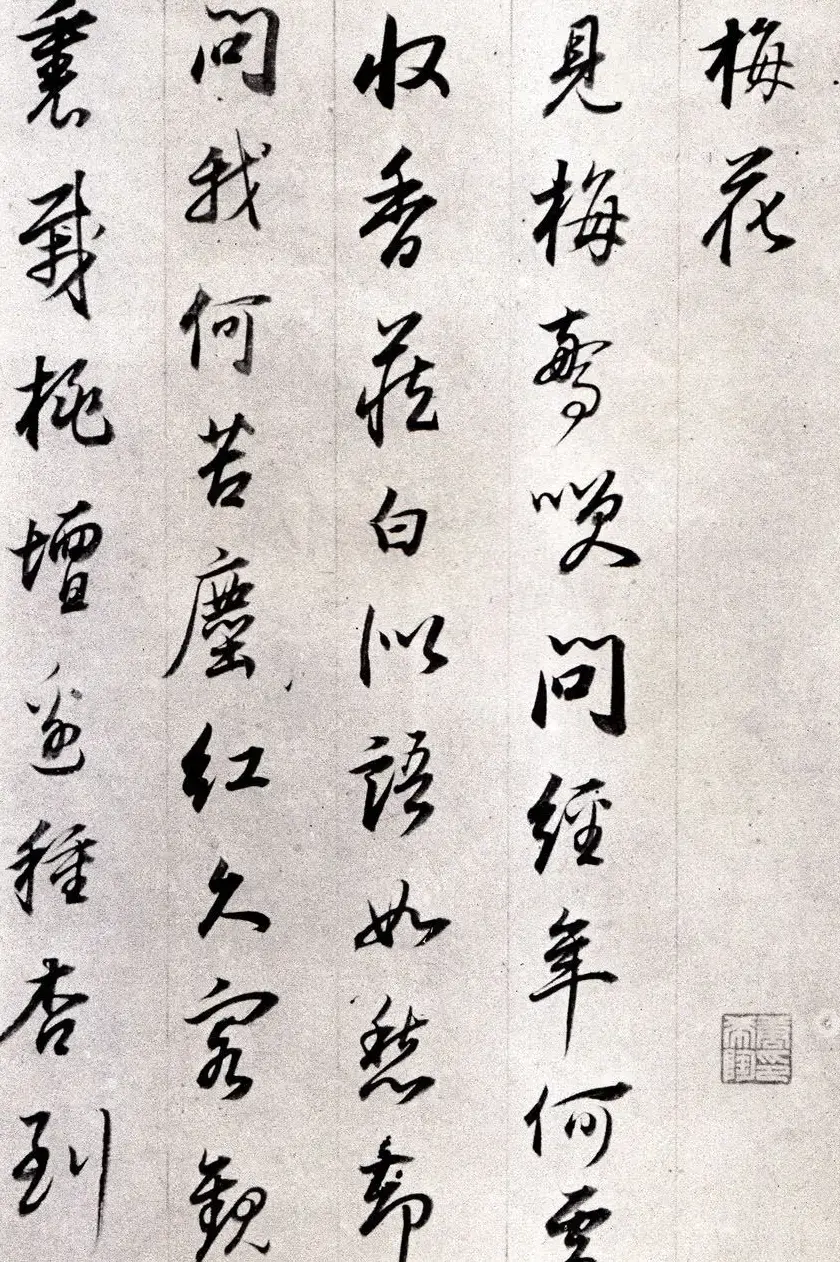 梅花
見梅驚笑問經年何處
收香藏白似語如愁却
問我何苦塵紅久客觀
裏栽桃壇邊種杏到